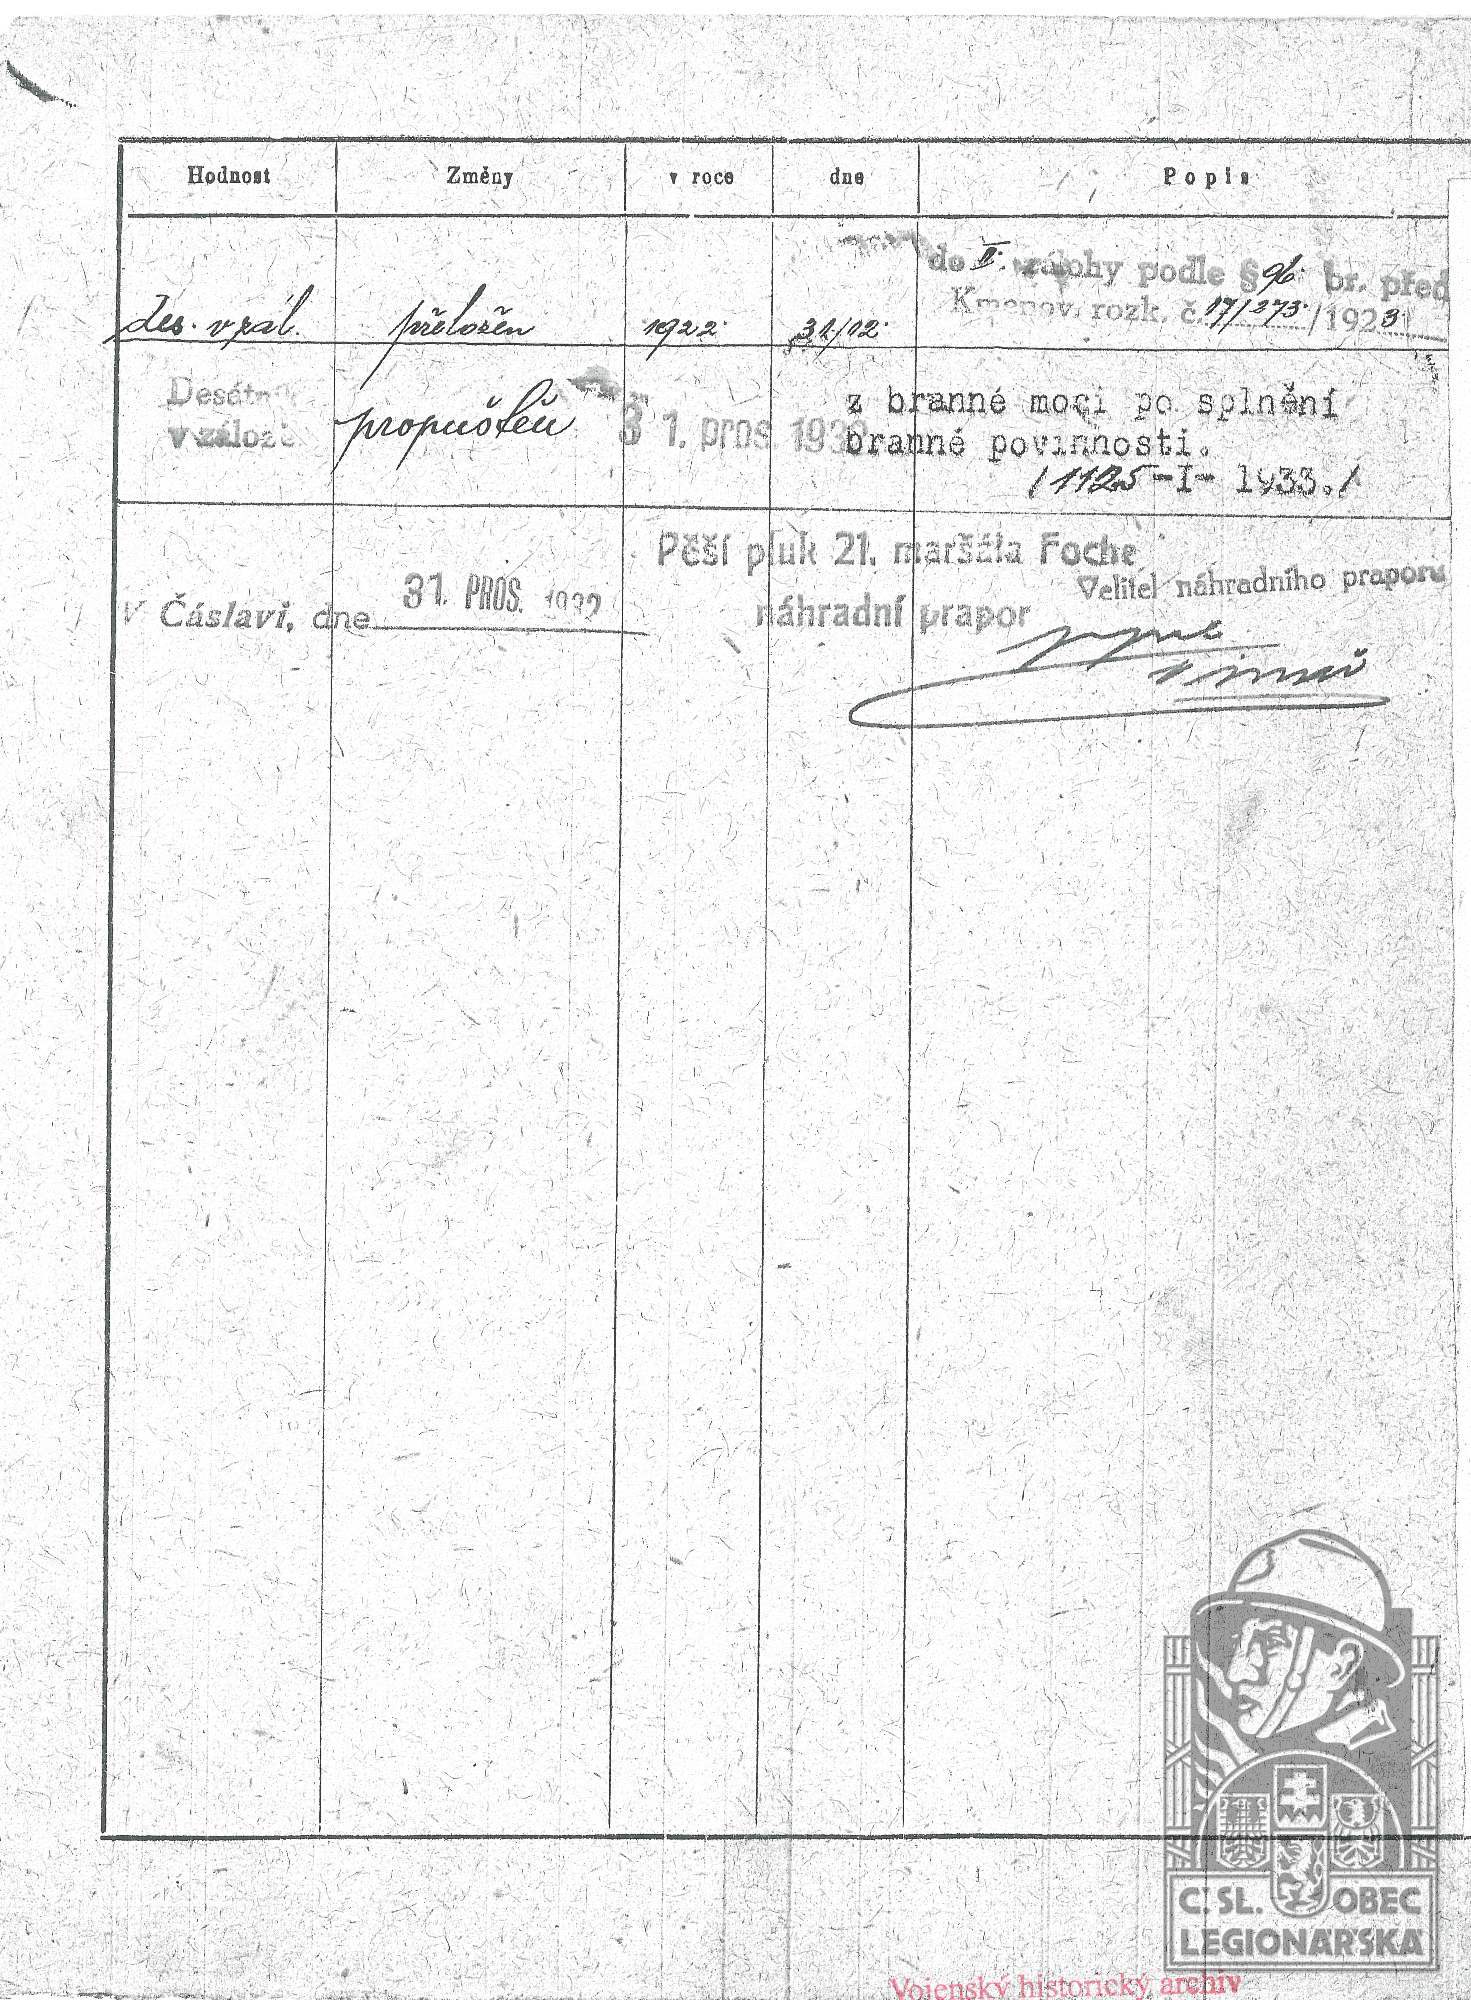 Hodnost Změny v roce dne Popis
do II. zálohy podle § 96 br. před
Kmenov. rozk. č. 17/273 /1923
des. v zál. přeložen 1922 31/12.
Desátník propuštěn 31. pros. 1932 z branné moci po splnění
v záloze branné povinnosti.
/1125-I- 1933./
Pěší pluk 21. maršála Foche
Velitel náhradního praporu
V Čáslavi, dne 31. PROS. 1932 náhradní prapor
Č. SL. OBEC
LEGIONÁŘSKÁ
Vojenský historický archiv